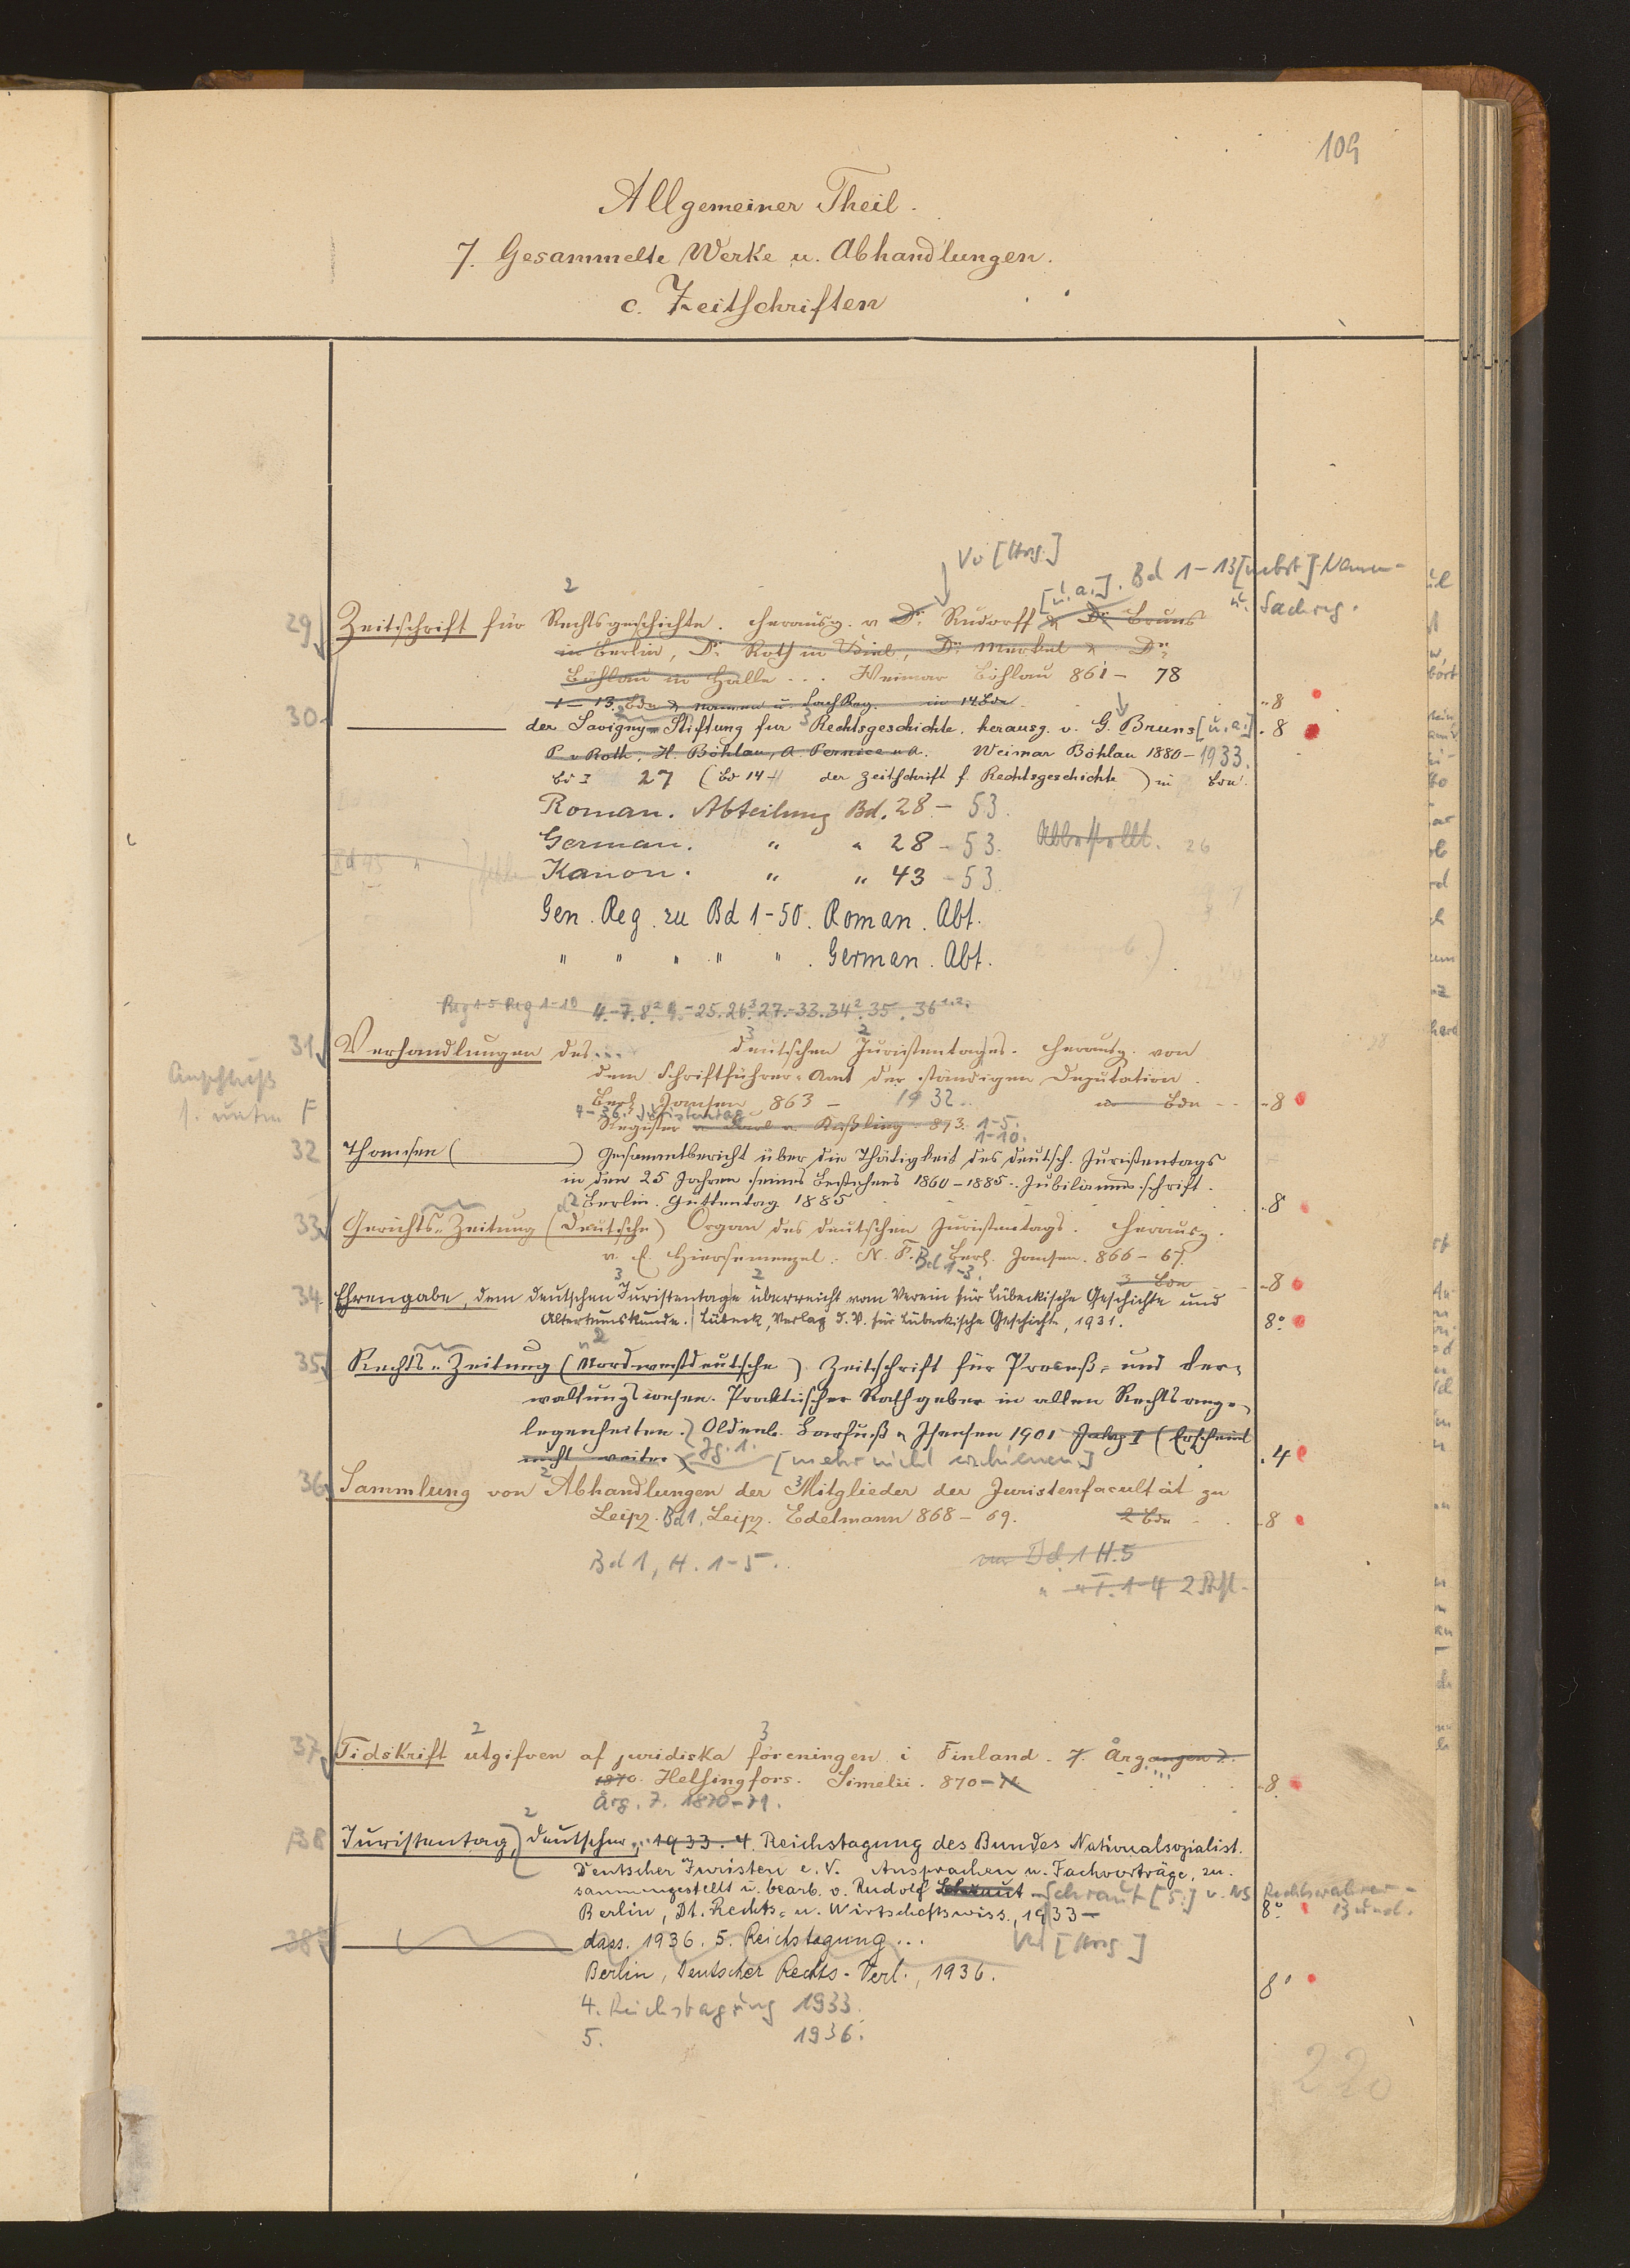 109
Allgemeiner Theil.
7. Gesammelte Werke u. Abhandlungen.
c. Zeitschriften
Vo [Hrsg.]
[u. a.]. Bd 1-13 [nebst] Namen-
u. Sachreg.
29 Zeitschrift für Rechtsgeschichte. Herausg. v Dr. Rudorff & Dr. Bruns
in Berlin, Dr. Roth in Kiel, Dr. Merkel & Dr.
Böhlau in Halle ... Weimar Böhlau 861 - 78
1-13. Bde & Namen u. Sach Reg. in 14 Bdn 8
30 der Savigny-Stiftung fur Rechtsgeschichte. herausg. v. G. Bruns [u. a.] 8
P. v Roth, H. Böhlau, A. Pernice u A. Weimar Böhlau 1880 - 1933.
Bd I 27 (Bd 14 der Zeitschrift f. Rechtsgeschichte) in Bdn.
Roman. Abteilung Bd. 28 - 53.
German. " " 28 - 53. Abbestellt. 26
Kanon. " " 43 - 53
Gen. Reg. zu Bd 1-50. Roman. Abt.
" " " " " . German. Abt.
Reg 1-5 Reg 1-10 4.-7. 8.² 9.-25. 26.³ 27.-33. 34². 35. 36
31 Verhandlungen des ... deutschen Juristentages. Herausg. von
dem Schriftführer-Amt der ständigen Deputation.
Anschluß
s. unten F
Berl. Jansen 863 - 1932. Bdn 8
4-36. Juristentag
Register 893. 1-5.
1-10.
32 Thomsen ( ) Gesammtbericht über die Thätigkeit des deutsch. Juristentags
in den 25 Jahren seines Bestehens 1860-1885. Jubiläums schrift.
Berlin. Guttentag 1885 8
33 Gerichts-Zeitung (Deutsche) Organ des deutschen Juristentags. Herausg.
v. C. Hiersemenzel. N. F. Berl. Jansen. 866 - 67.
Bd 1-3. 3 Bde 8
34. Ehrengabe, dem deutschen Juristentage überreicht vom Verein für Lübeckische Geschichte und
Altertumskunde. Lübeck, Verlag d. V. für Lübeckische Geschichte, 1931. 8°
35 Rechts-Zeitung (Nordwestdeutsche). Zeitschrift für Proceß- und Ver-
waltungswesen. Praktischer Rathgeber in allen Rechtsange-
legenheiten. Oldenb. Barfuß & Isensen 1901 Jahrg I (Erscheint
nicht weiter) Jg. 1. [mehr nicht erschienen.] 4
36. Sammlung von Abhandlungen der Mitglieder der Juristenfacultät zu
Leipz. Bd 1. Leipz. Edelmann 868 - 69. 2 Bde 8
Bd 1, H. 1-5. Bd 1 H. 5
37 Tidskrift utgifven af juridiska föreningen i Finland. 7. Årgangen
1870. Helsingfors. Simelii. 870 - 71 8
Årg. 7. 1870-71.
38 Juristentag, deutscher, 1933. 4. Reichstagung des Bundes Nationalsozialist.
Deutscher Juristen e. V. Ansprachen u. Fachvorträge, zu-
sammengestellt u. bearb. v. Rudolf Schraut [s.] v. NS Rechtswahrer-
Bund.
Berlin, Dt. Rechts- u. Wirtschaftswiss., 1933 - 8°
38a dass. 1936. 5. Reichstagung ... [Hrsg.]
Berlin, Deutscher Rechts-Verl., 1936. 8°
4. Reichstagung 1933.
5. 1936.
220